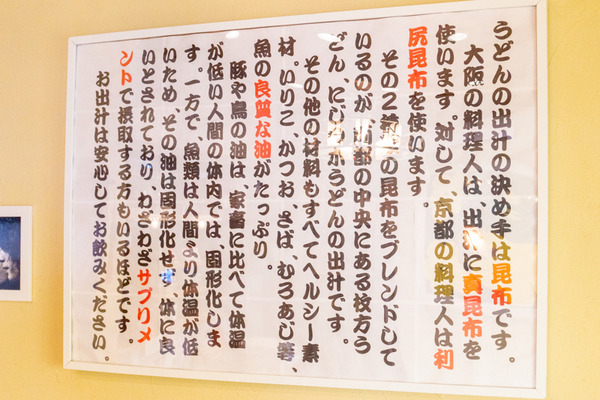 うどんの出汁の決め手は昆布です。
大阪の料理人は、出汁に真昆布を
使います。対して、京都の料理人は利
尻昆布を使います。
その2種類の昆布をブレンドして
いるのが都の中央にある枚方う
どん、うどんの出汁です。
その他の材料もすべてヘルシー素
材。いりこ、かつお、さば、むろあじ等、
魚の良質な油がたっぷり。
豚や鳥の油は、家畜に比べて体温
が低い人間の体内では、固形化しま
す。一方で、魚類は人間より体温が低
いため、その油は固形化せず、体に良
いとされており、わざわざサプリメ
ントで摂取する方もいるほどです。
お出汁は安心してお飲みください。